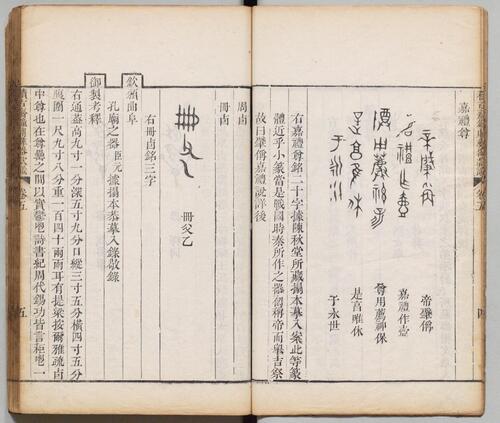 嘉禮尊
帝肇偁
嘉禮作壺
尊用薦神保
是亯隹休
于永世
右嘉禮尊銘二十字據陳秋堂所藏搨本摹入案此等篆
體近乎小篆當是戰國時秦所作之器銘稱帝而舉吉祭
故曰肇偁嘉禮說詳後
四
周卣
冊卣
冊父乙
右冊卣銘三字
欽頒曲阜
孔廟之器臣元據搨本恭摹入錄敬錄
御製考釋
右通蓋高九寸一分深五寸九分口縱三寸五分橫四寸五分
腹圍一尺九寸八分重一百四十兩兩耳有提梁按爾雅疏卣
中尊也在尊罍之間以實鬱鬯詩書紀周代錫功皆言秬鬯一
卷五
五